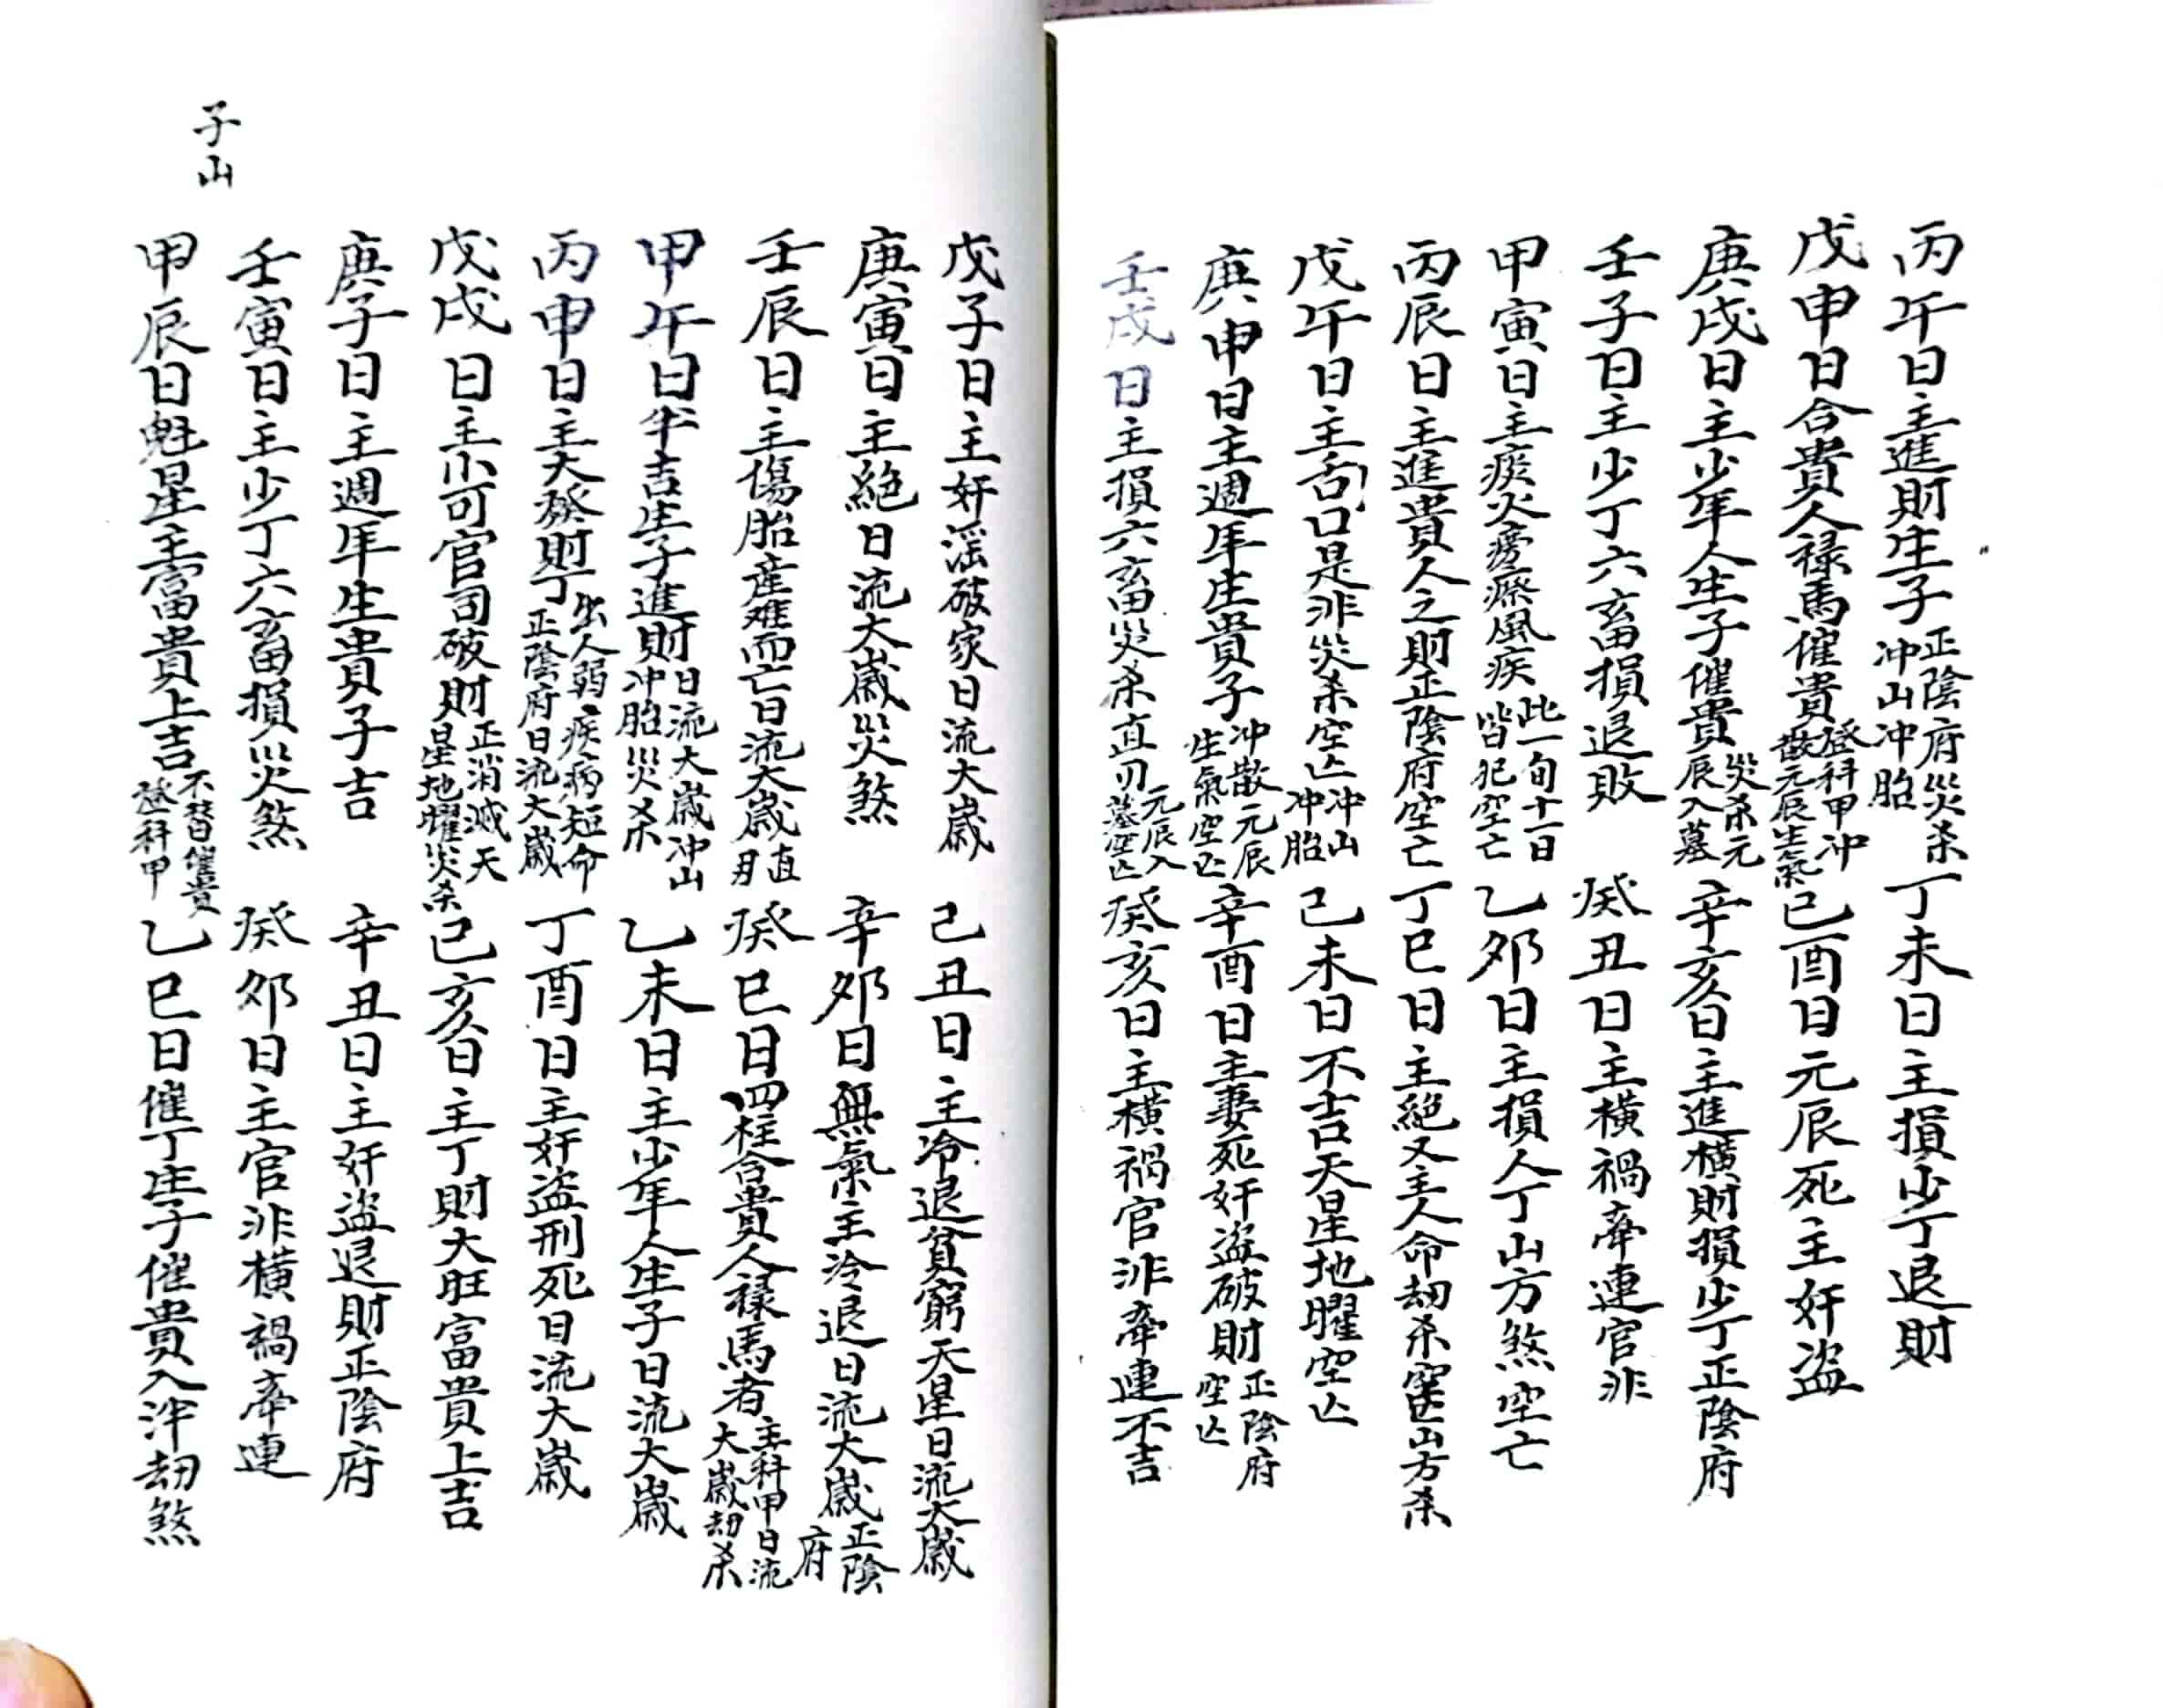 丙午日主進財生子正陰府災杀冲山冲胎 丁未日主損少丁退財
戊申日合貴人禄馬催貴登科甲冲散元辰生氣 己酉日元辰死主奸盗
庚戌日主少年人生子催貴災杀元辰入墓 辛亥日主進横財損少丁正陰府
壬子日主少丁六畜損退敗 癸丑日主横禍牽連官非
甲寅日主痰火癆瘵風疾此一旬十二日皆犯空亡 乙夘日主損人丁山方煞空亡
丙辰日主進貴人之財正陰府空亡 丁巳日主絕又主人命劫杀空亡山方杀
戊午日主舌口是非災杀空亾冲山冲胎 己未日不吉天星地曜空亾
庚申日主週年庄貴子冲散元辰生氣空亾 辛酉日主妻死奸盗破財正陰府空亾
壬戌日主損六畜災杀直刃元辰入墓空亾 癸亥日主横禍官非牽連不吉
戊子日主奸滛破家日流大歲 己丑日主冷退貧窮天星日流大歲
庚寅日主絕日流大歲災煞 辛夘日無氣主冷退日流大歲正陰府
壬辰日主傷胎産难而亡日流大歲直刃 癸巳日四柱合貴人禄馬者主科甲日流大歲劫杀
甲午日半吉生子進財日流大歲冲山冲胎災杀 乙未日主少年人生子日流大歲
丙申日主大發財丁出人弱疾病短命正陰府日流大歲 丁酉日主奸盗刑死日流大歲
戊戌日主小可官司破財正消滅天星地曜災杀 己亥日主丁財大旺富貴上吉
庚子日主週年生貴子吉 辛丑日主奸盗退財正陰府
壬寅日主少丁六畜損災煞 癸夘日主官非横禍牽連
子山
甲辰日魁星主富貴上吉不替日催貴登科甲 乙巳日催丁生子催貴入泮劫煞